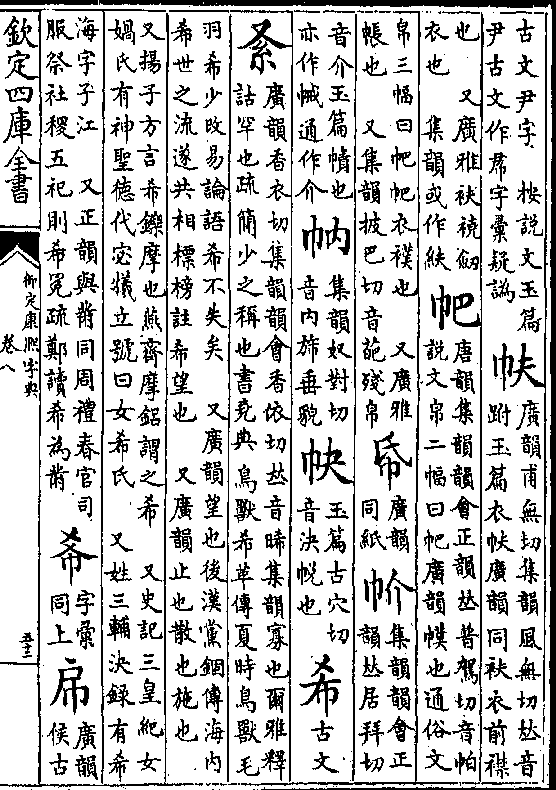 古文尹字　按說文玉篇
尹古文作帬字彙疑譌
廣韻甫無切集韻風無切𠀤音
跗玉篇衣　廣韻同衭衣前襟
也　又廣雅衭襓劒
衣也　集韻或作
帊
唐韻集韻韻會正韻𠀤普駕切音帕
說文帛二幅曰帊廣韻幞也通俗文
帛三幅曰帊帊衣襆也　又廣雅
帳也　又集韻披巴切音葩殘帛
帋
廣韻
同紙
集韻韻會正
韻𠀤居拜切
音介玉篇幘也
亦作　通作介
集韻奴對切
音内旆垂貌
玉篇古穴切
音決帨也
希
古文
廣韻香衣切集韻韻會香依切𠀤音晞集韻寡也爾雅釋
詁罕也疏簡少之稱也書堯典鳥獸希革傳夏時鳥獸毛
羽希少攺易論語希不失矣　又廣韻望也後漢黨錮傳海内
希世之流遂共相標榜註希望也　又廣韻止也散也施也
又揚子方言希鑠摩也燕齊摩鋁謂之希　又史記三皇紀女
媧氏有神聖德代宓犧立號曰女希氏　又姓三輔決録有希
海字子江　又正韻與黹同周禮春官司
服祭社稷五祀則希冕疏鄭讀希為黹
字彙
同上
帍
廣韻
侯古
欽定四庫全書
御定康熙字典
卷八
五十二